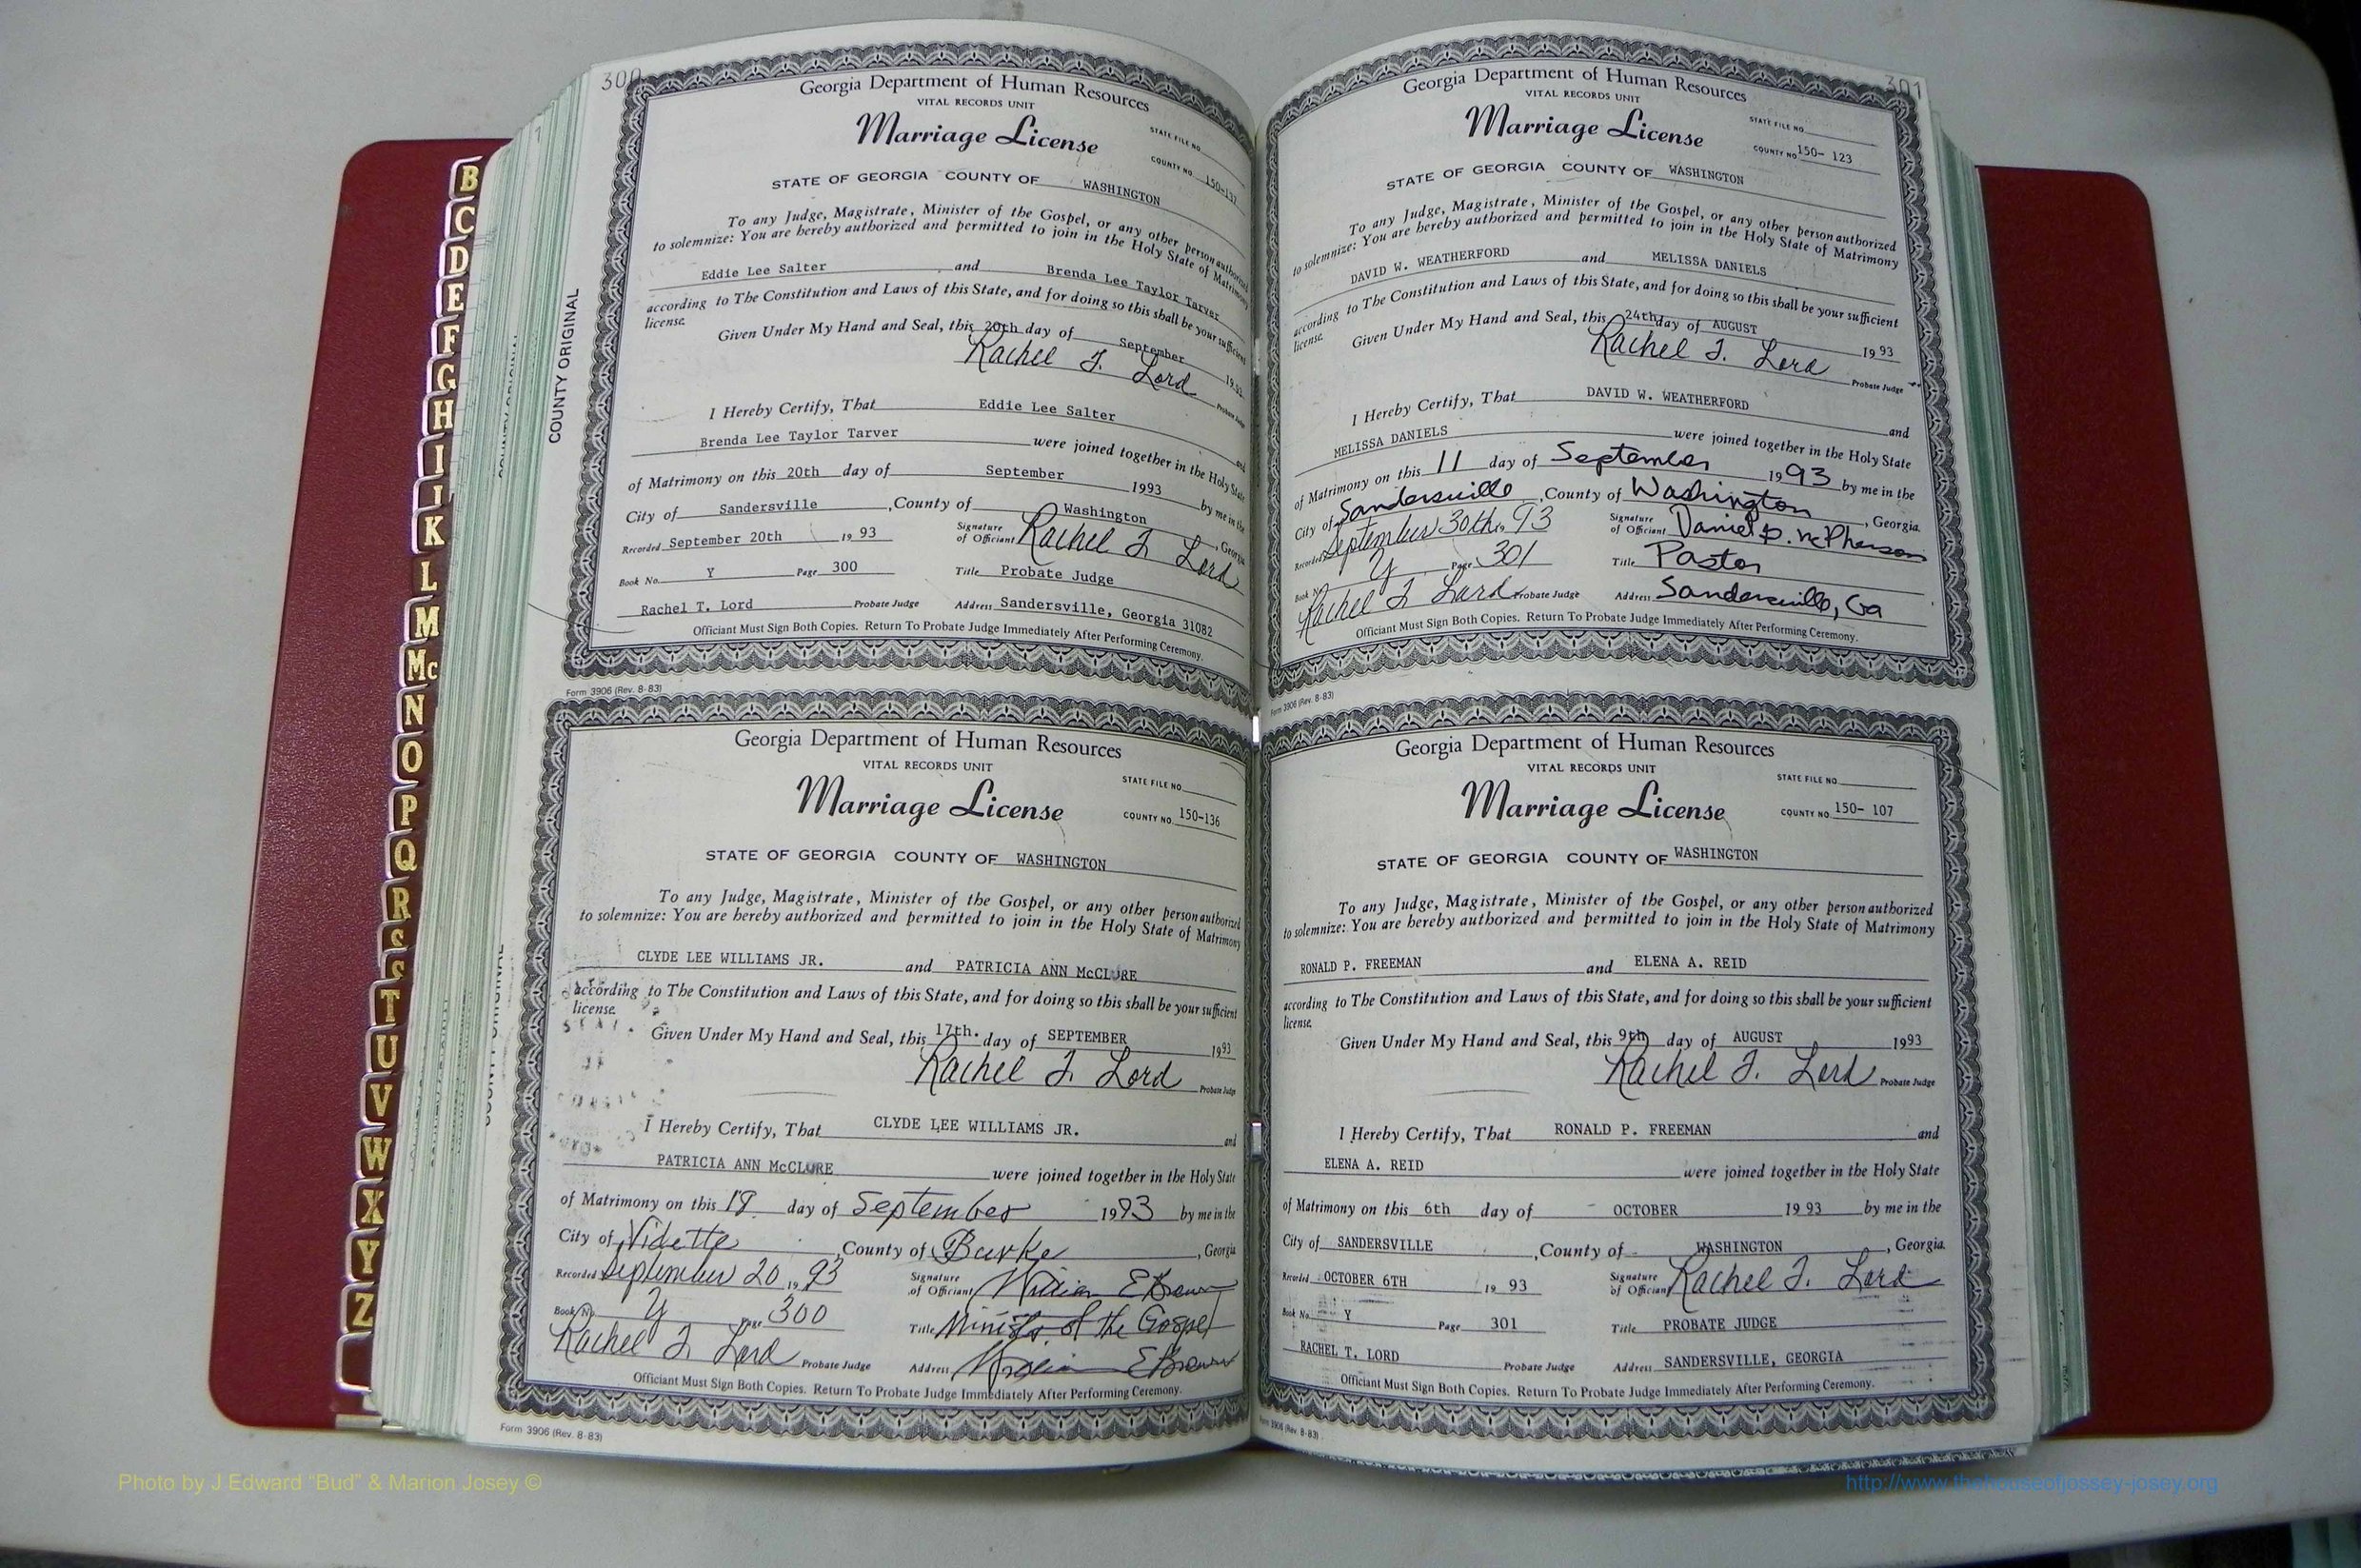 300
COUNTY ORIGINAL
Georgia Department of Human Resources
VITAL RECORDS UNIT
Marriage License
STATE FILE NO.
COUNTY NO. 150-137
STATE OF GEORGIA COUNTY OF WASHINGTON
To any Judge, Magistrate, Minister of the Gospel, or any other person authorized
to solemnize: You are hereby authorized and permitted to join in the Holy State of Matrimony
Eddie Lee Salter and Brenda Lee Taylor Tarver
according to The Constitution and Laws of this State, and for doing so this shall be your sufficient
license.
Given Under My Hand and Seal, this 20th day of September 1993
Rachel T. Lord Probate Judge
I Hereby Certify, That Eddie Lee Salter and
Brenda Lee Taylor Tarver were joined together in the Holy State
of Matrimony on this 20th day of September 1993 by me in the
City of Sandersville, County of Washington, Georgia
Recorded September 20th 1993 Signature of Officiant Rachel T. Lord
Book No. Y Page 300 Title Probate Judge
Rachel T. Lord Probate Judge Address Sandersville, Georgia 31082
Officiant Must Sign Both Copies. Return To Probate Judge Immediately After Performing Ceremony.
Form 3906 (Rev. 8-83)
Georgia Department of Human Resources
VITAL RECORDS UNIT
Marriage License
STATE FILE NO.
COUNTY NO. 150-136
STATE OF GEORGIA COUNTY OF WASHINGTON
To any Judge, Magistrate, Minister of the Gospel, or any other person authorized
to solemnize: You are hereby authorized and permitted to join in the Holy State of Matrimony
CLYDE LEE WILLIAMS JR. and PATRICIA ANN McCLURE
according to The Constitution and Laws of this State, and for doing so this shall be your sufficient
license.
Given Under My Hand and Seal, this 17th. day of SEPTEMBER 1993
Rachel T. Lord Probate Judge
I Hereby Certify, That CLYDE LEE WILLIAMS JR. and
PATRICIA ANN McCLURE were joined together in the Holy State
of Matrimony on this 18 day of September 1993 by me in the
City of Vidette, County of Burke, Georgia
Recorded September 20 1993 Signature of Officiant William E Brown
Book No. Y Page 300 Title Minister of the Gospel
Rachel T. Lord Probate Judge Address William E Brown
Officiant Must Sign Both Copies. Return To Probate Judge Immediately After Performing Ceremony.
Form 3906 (Rev. 8-83)
301
Georgia Department of Human Resources
VITAL RECORDS UNIT
Marriage License
STATE FILE NO.
COUNTY NO. 150- 123
STATE OF GEORGIA COUNTY OF WASHINGTON
To any Judge, Magistrate, Minister of the Gospel, or any other person authorized
to solemnize: You are hereby authorized and permitted to join in the Holy State of Matrimony
DAVID W. WEATHERFORD and MELISSA DANIELS
according to The Constitution and Laws of this State, and for doing so this shall be your sufficient
license.
Given Under My Hand and Seal, this 24th day of AUGUST 1993
Rachel T. Lord Probate Judge
I Hereby Certify, That DAVID W. WEATHERFORD and
MELISSA DANIELS were joined together in the Holy State
of Matrimony on this 11 day of September 1993 by me in the
City of Sandersville, County of Washington, Georgia.
Recorded September 30th, 93 Signature of Officiant Daniel D. McPherson
Book No. Y Page 301 Title Pastor
Rachel T. Lord Probate Judge Address Sandersville, Ga
Officiant Must Sign Both Copies. Return To Probate Judge Immediately After Performing Ceremony.
Form 3906 (Rev. 8-83)
Georgia Department of Human Resources
VITAL RECORDS UNIT
Marriage License
STATE FILE NO.
COUNTY NO. 150- 107
STATE OF GEORGIA COUNTY OF WASHINGTON
To any Judge, Magistrate, Minister of the Gospel, or any other person authorized
to solemnize: You are hereby authorized and permitted to join in the Holy State of Matrimony
RONALD P. FREEMAN and ELENA A. REID
according to The Constitution and Laws of this State, and for doing so this shall be your sufficient
license.
Given Under My Hand and Seal, this 9th day of AUGUST 1993
Rachel T. Lord Probate Judge
I Hereby Certify, That RONALD P. FREEMAN and
ELENA A. REID were joined together in the Holy State
of Matrimony on this 6th day of OCTOBER 1993 by me in the
City of SANDERSVILLE, County of WASHINGTON, Georgia.
Recorded OCTOBER 6TH 1993 Signature of Officiant Rachel T. Lord
Book No. Y Page 301 Title PROBATE JUDGE
RACHEL T. LORD Probate Judge Address SANDERSVILLE, GEORGIA
Officiant Must Sign Both Copies. Return To Probate Judge Immediately After Performing Ceremony.
Form 3906 (Rev. 8-83)
B
C
D
E
F
G
H
I
J
K
L
M
Mc
N
O
P
Q
R
S
S
T
U
V
W
X
Y
Z
Photo by J Edward “Bud” & Marion Josey ©
http://www.thehouseofjossey-josey.org